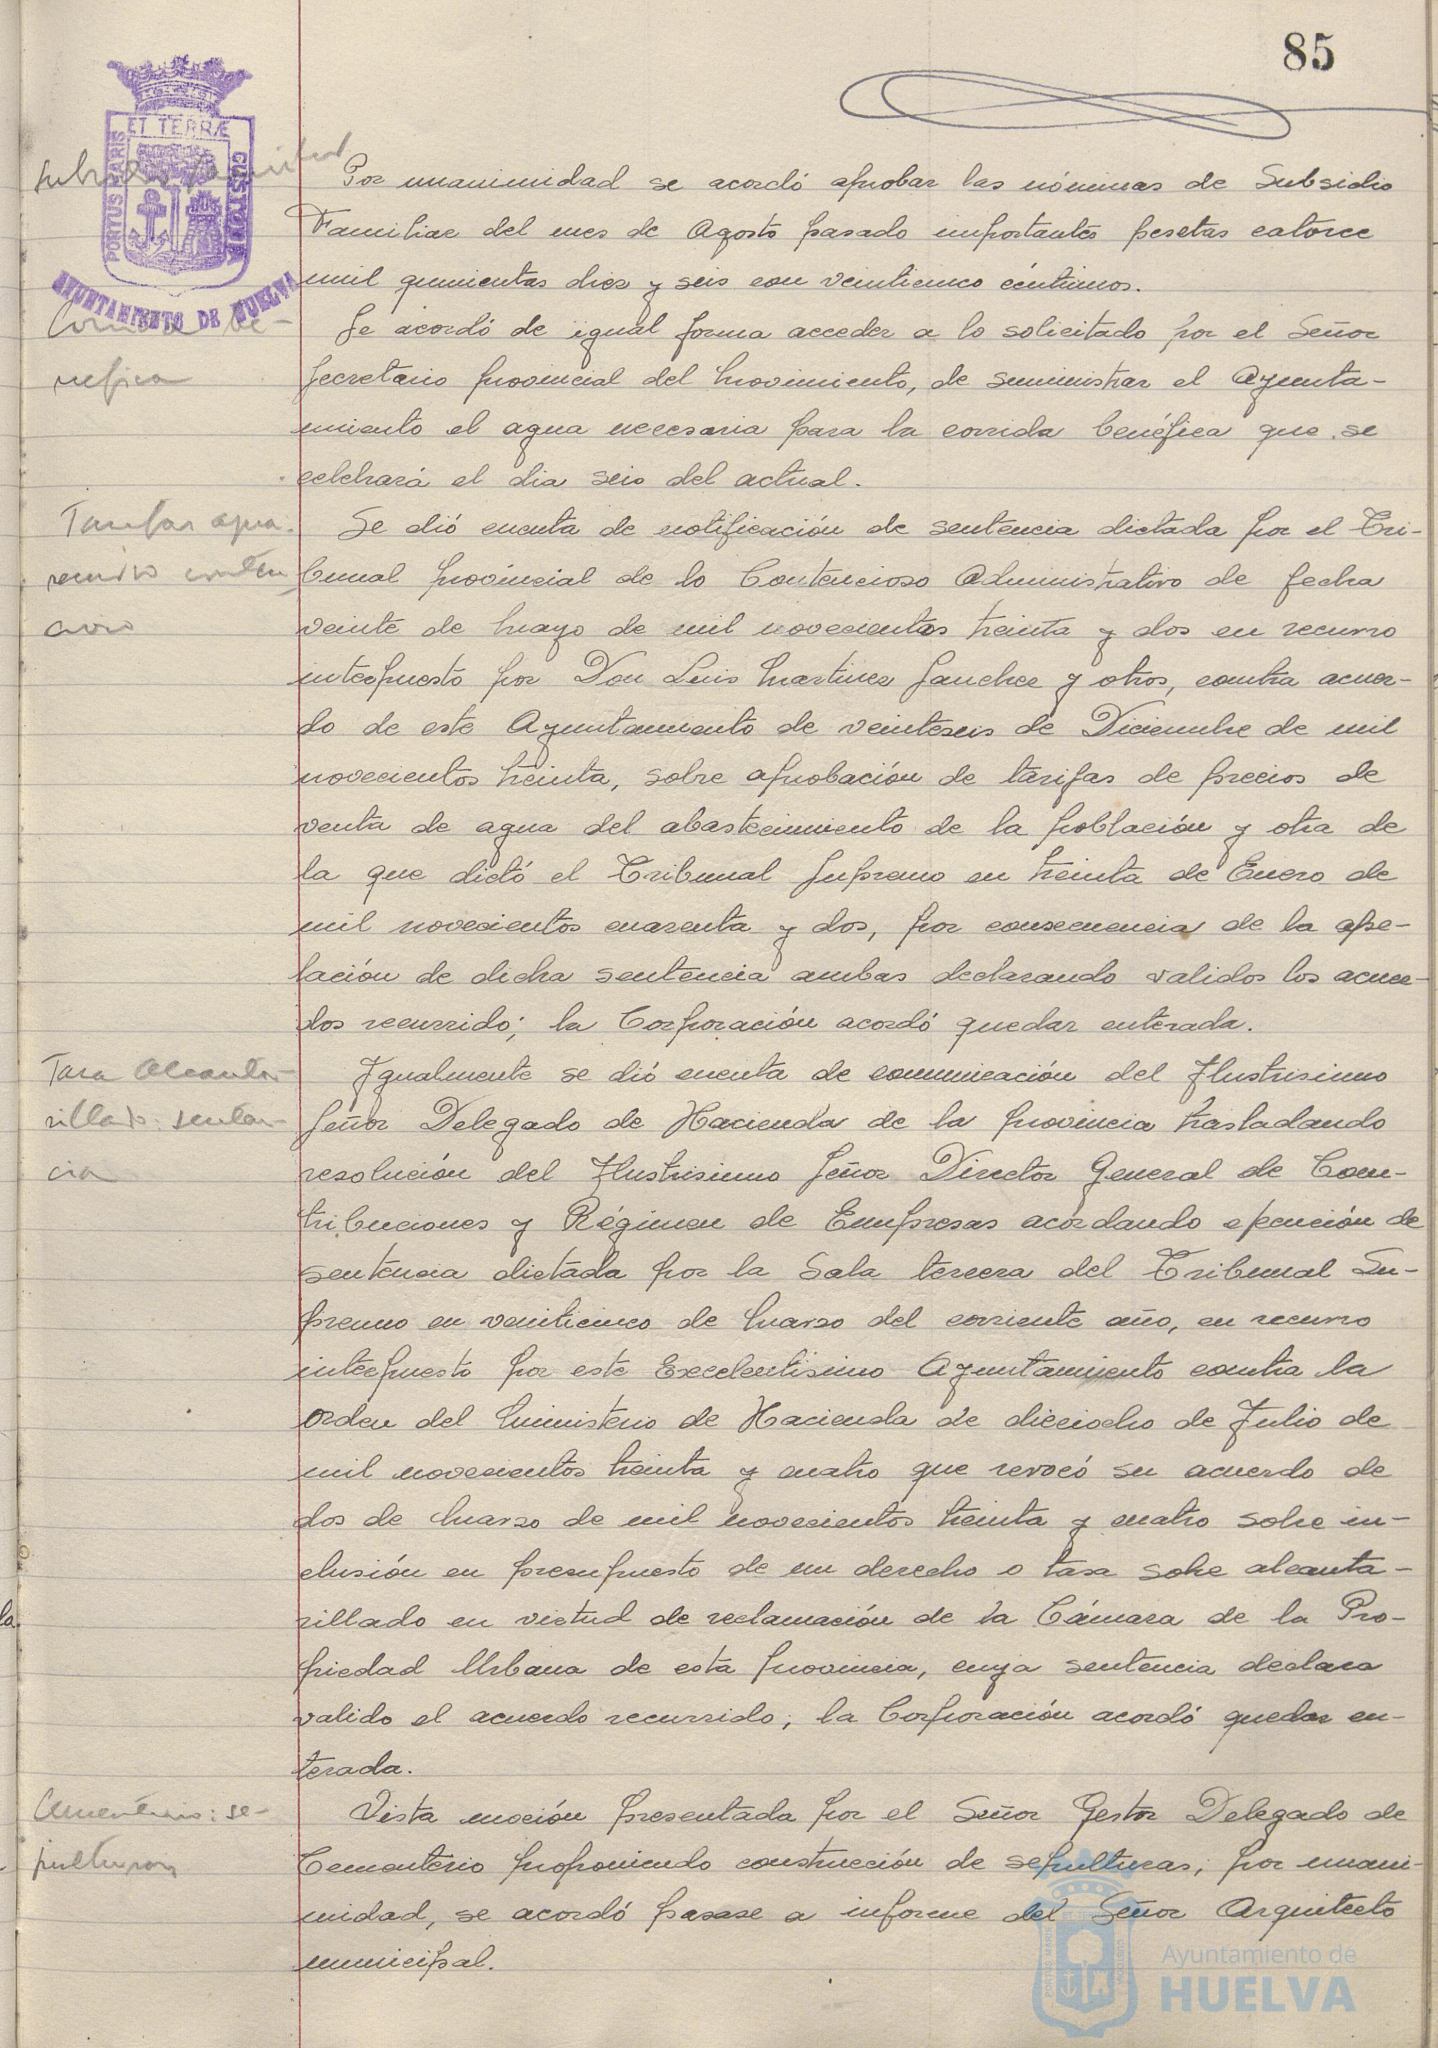 85
PORTUS MARIS ET TERRÆ CUSTODIA
AYUNTAMIENTO DE HUELVA
Subsidio Familiar
Por unanimidad se acordó aprobar las nóminas de Subsidio
Familiar del mes de Agosto pasado importantes pesetas catorce
mil quinientas diez y seis con veinticinco céntimos.
Corrida be-
néfica
Se acordó de igual forma acceder a lo solicitado por el Señor
Secretario provincial del Movimiento, de suministrar el Ayunta-
miento el agua necesaria para la corrida benéfica que se
celebrará el dia seis del actual.
Tarifas agua.
recurso conten
cioso
Se dió cuenta de notificación de sentencia dictada por el Tri-
bunal provincial de lo Contencioso Administrativo de fecha
veinte de Mayo de mil novecientos treinta y dos en recurso
interpuesto por Don Luis Martinez Sanchez y otros, contra acuer-
do de este Ayuntamiento de veinteseis de Diciembre de mil
novecientos treinta, sobre aprobación de tarifas de precios de
venta de agua del abastecimiento de la población y otra de
la que dictó el Tribunal Supremo en treinta de Enero de
mil novecientos cuarenta y dos, por consecuencia de la ape-
lación de dicha sentencia ambas declarando validos los acuer-
dos recurrido; la Corporación acordó quedar enterada.
Tasa Alcanta-
rillado: senten-
cia
Igualmente se dió cuenta de comunicación del Ilustrisimo
Señor Delegado de Hacienda de la provincia trasladando
resolución del Ilustrisimo Señor Director General de Con-
tribuciones y Régimen de Empresas acordando ejecución de
sentencia dictada por la Sala tercera del Tribunal Su-
premo en veinticinco de Marzo del corriente año, en recurso
interpuesto por este Excelentisimo Ayuntamiento contra la
Orden del Ministerio de Hacienda de dieciocho de Julio de
mil novecientos treinta y cuatro que revocó su acuerdo de
dos de Marzo de mil novecientos treinta y cuatro sobre in-
clusión en presupuesto de un derecho o tasa sobre alcanta-
rillado en virtud de reclamación de la Cámara de la Pro-
piedad Urbana de esta provincia, cuya sentencia declara
valido el acuerdo recurrido; la Corporación acordó quedar en-
terada.
Cementerio: se-
pulturas
Vista moción presentada por el Señor Gestor Delegado de
Cementerio proponiendo construcción de sepulturas; por unani-
midad, se acordó pasase a informe del Señor Arquitecto
municipal.
Ayuntamiento de
HUELVA